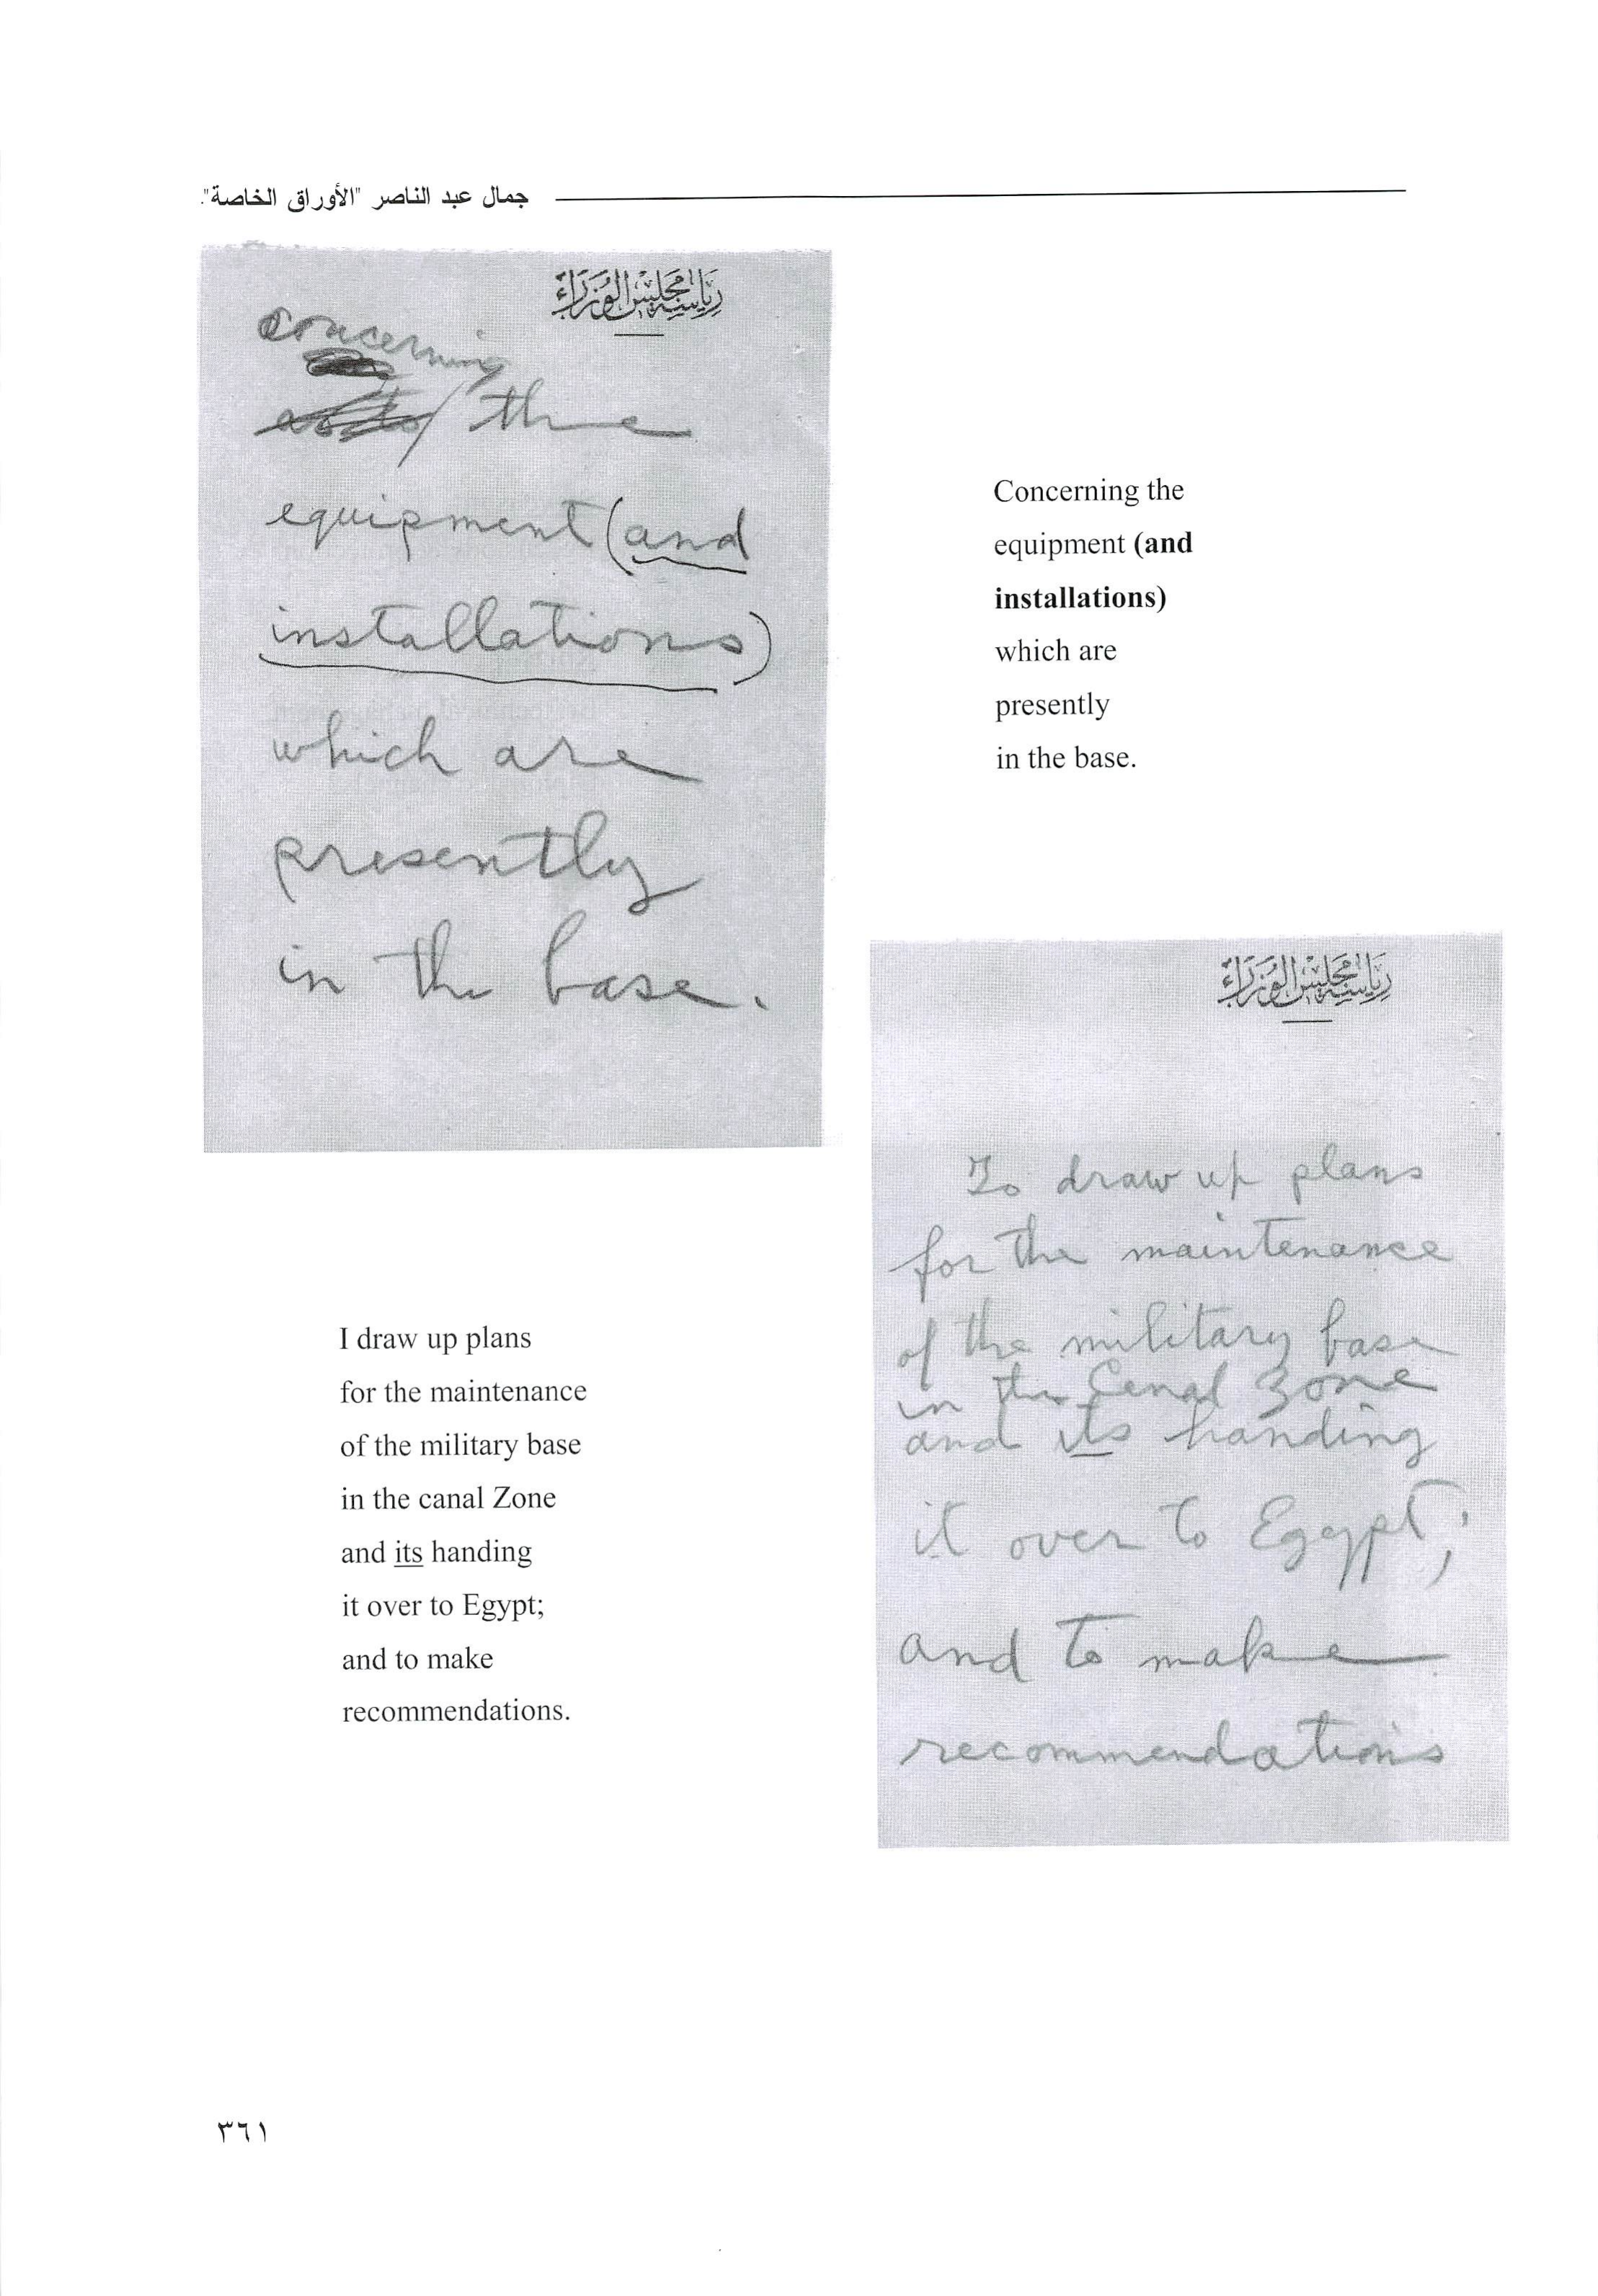 جمال عبد الناصر "الأوراق الخاصة".
رياسة مجلس الوزراء
concerning
the
equipment (and
installations)
which are
presently
in the base.
Concerning the
equipment (and
installations)
which are
presently
in the base.
رياسة مجلس الوزراء
To draw up plans
for the maintenance
of the military base
in the Canal Zone
and its handing
it over to Egypt;
and to make
recommendations
I draw up plans
for the maintenance
of the military base
in the canal Zone
and its handing
it over to Egypt;
and to make
recommendations.
٣٦١